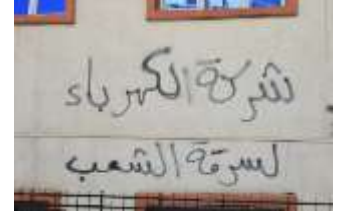 شركة الكهرباء
لسرقة الشعب